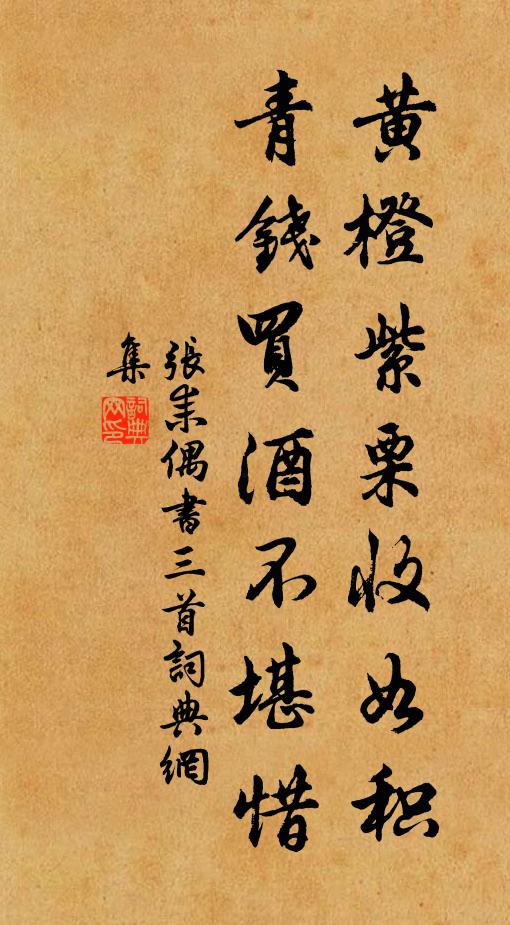 黄橙紫栗收如积
青錢買酒不堪惜
張耒偶書三首詞典網
集
詞典
网印